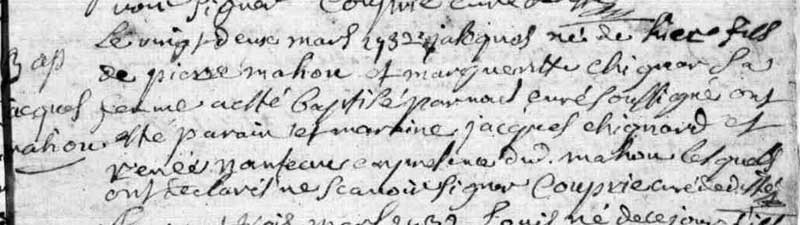 pour signer Couprie curé
Le vingt deux mars 1732 jacques né de hier fils
Bap
de pierre mahou et margueritte chignard sa
jacques
femme a etté baptisé par nous curé soussigné ont
mahou
etté parain et maraine jacques chignard et
renée en presence dud. mahou lesquels
ont declarés ne scavoir signer Couprie curé dedittes
mars 1732 Louis né de ce jour fils